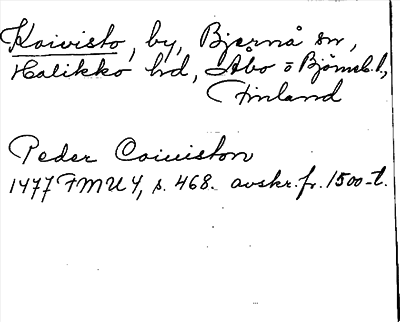 Koivisto, by, Bjernå sn,
Halikko hd, Åbo o Björneb. l.,
Finland
Peder Coiuiston
1477 FMU 4, s. 468. avskr. fr. 1500-t.